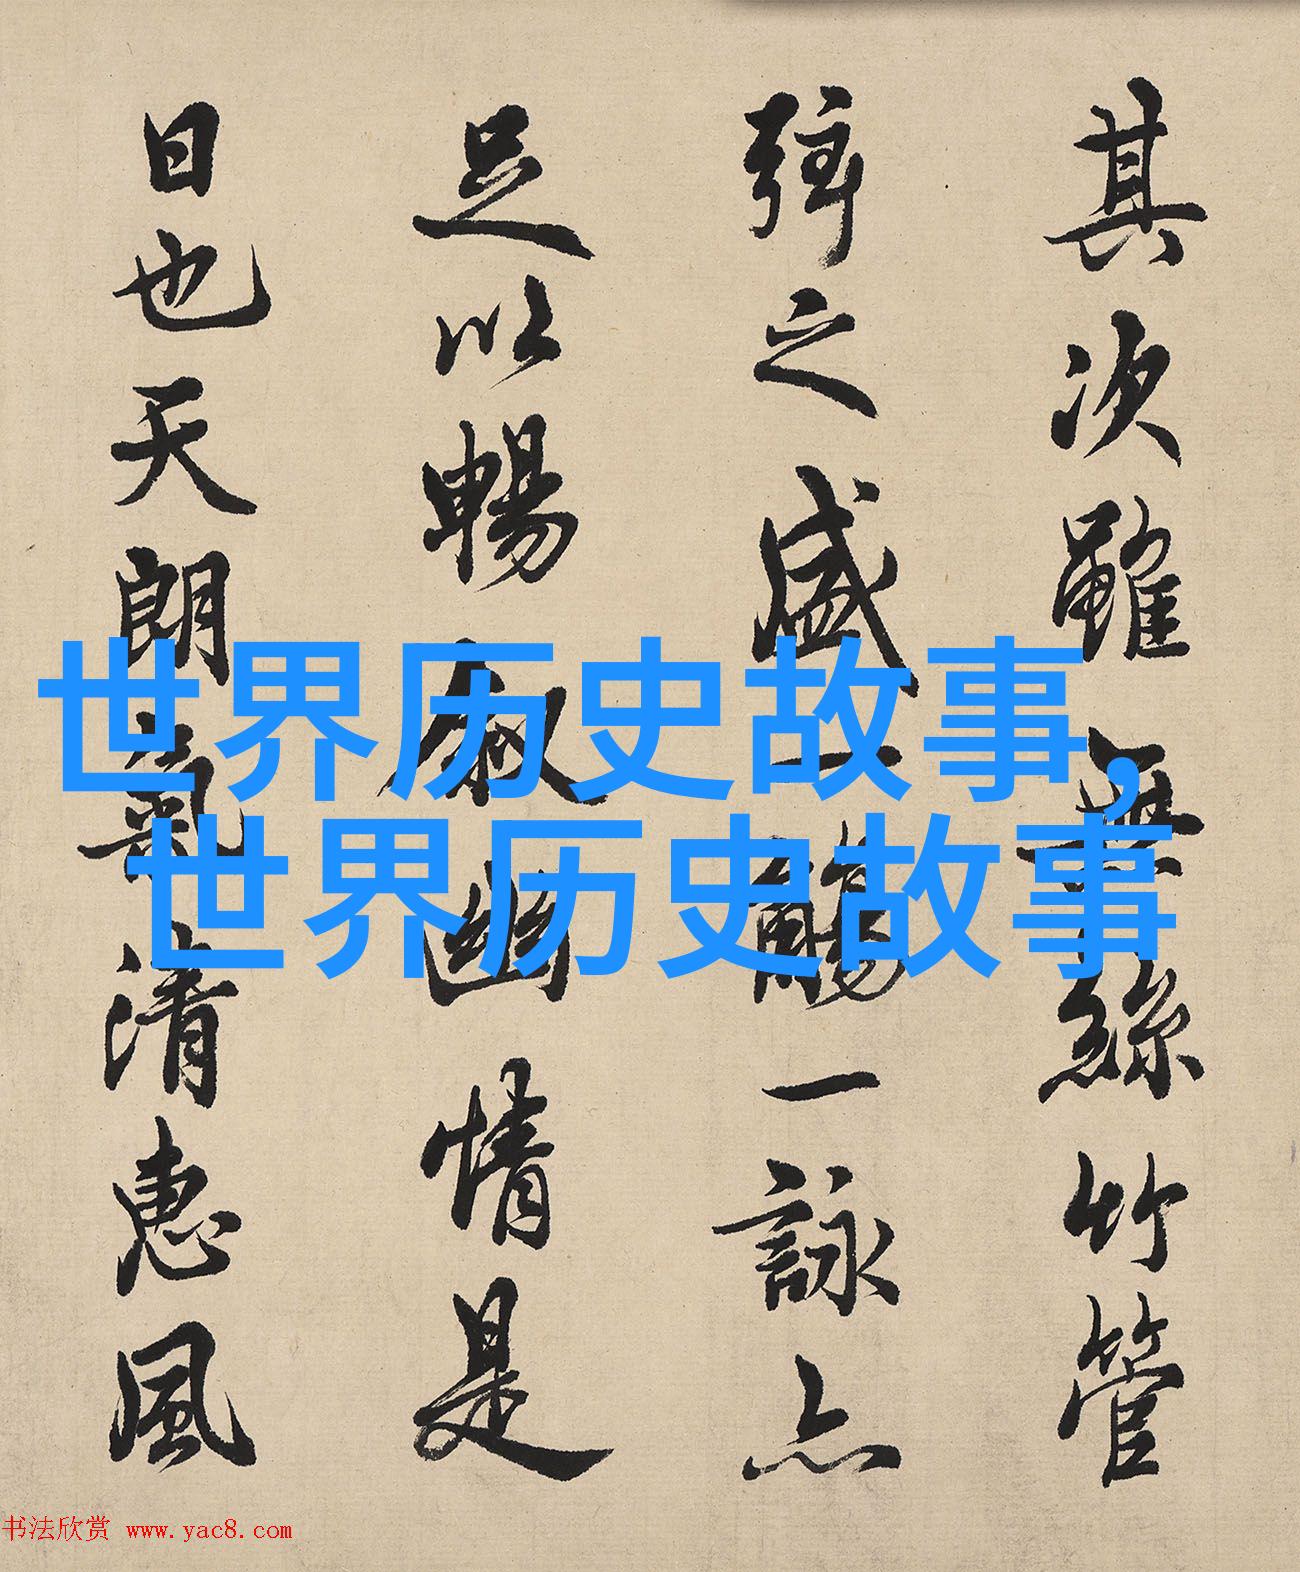 其次雖無絲竹管
弦之盛一觴一詠亦
足以暢叙幽情是
日也天朗氣清惠風
世界历史故事,
世界历史故事
书法欣赏 www.yac8.com